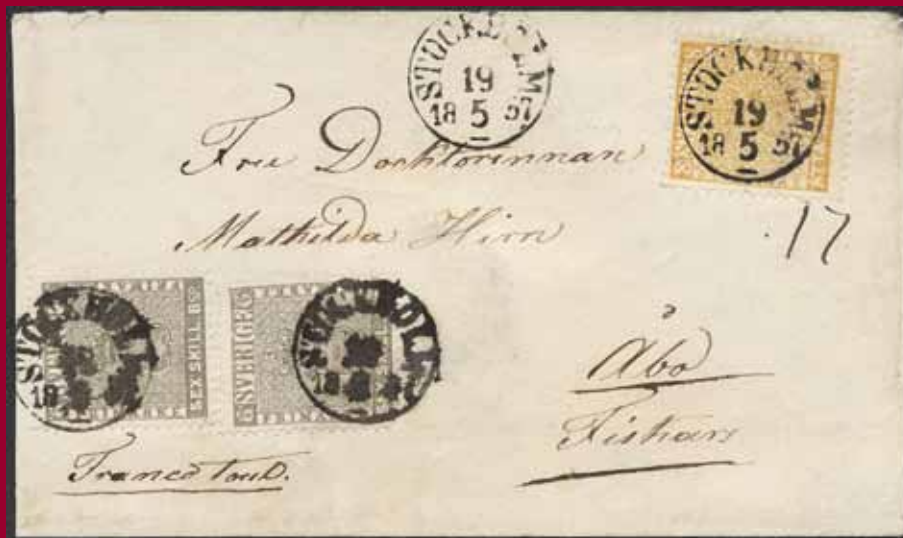 STOCKHOLM
19
18 5 57
STOCKHOLM
19
18 5 57
Fru Docktorinnan
Mathilda Hirn
17
SEX SKILL BCO
SVERIGE
STOCKHOLM
18
STOCKHOLM
18
Åbo
Fiskars
Franco tout.